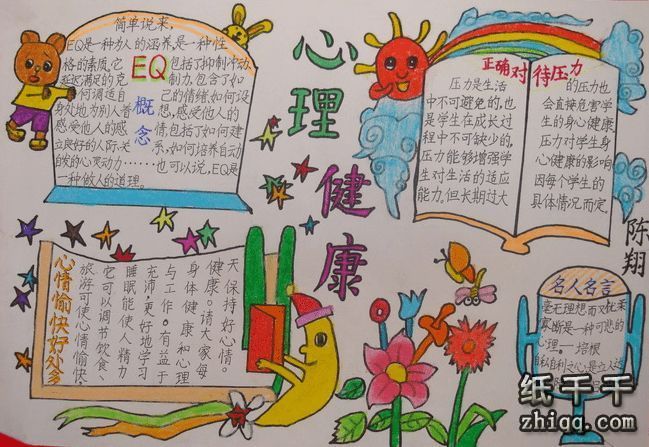 心理健康
简单说来,
EQ是一种为人的涵养,是一种性
格的素质,它 EQ 包括了抑制冲动
延迟满足的克 制力,包含了如
何调适自 己的情绪,如何设
身处地为别人着 想,感受他人的
感受他人的感 情,包括了如何建
立良好的人际关 系,如何培养自动
自发的心灵动力……也可以说,EQ是
一种做人的道理。
概念
正确对待压力
压力是生活
中不可避免的,也
是学生在成长过
程中不可缺少的,
压力能够增强学
生对生活的适应
能力。但长期过大
的压力也
会直接危害学
生的身心健康
压力对学生身
心健康的影响
因每个学生的
具体情况而定。
陈翔
心情愉快好处多
旅游可使心情愉快
它可以调节饮食
睡眠能使人精力
充沛,更好地学习
与工作。有益于
身体健康和心理
健康。请大家每
天保持好心情。
名人名言
毫无理想而又优柔
寡断是一种可悲的
心理。——培根
自私自利之心是立人达
纸千千
zhiqq.com